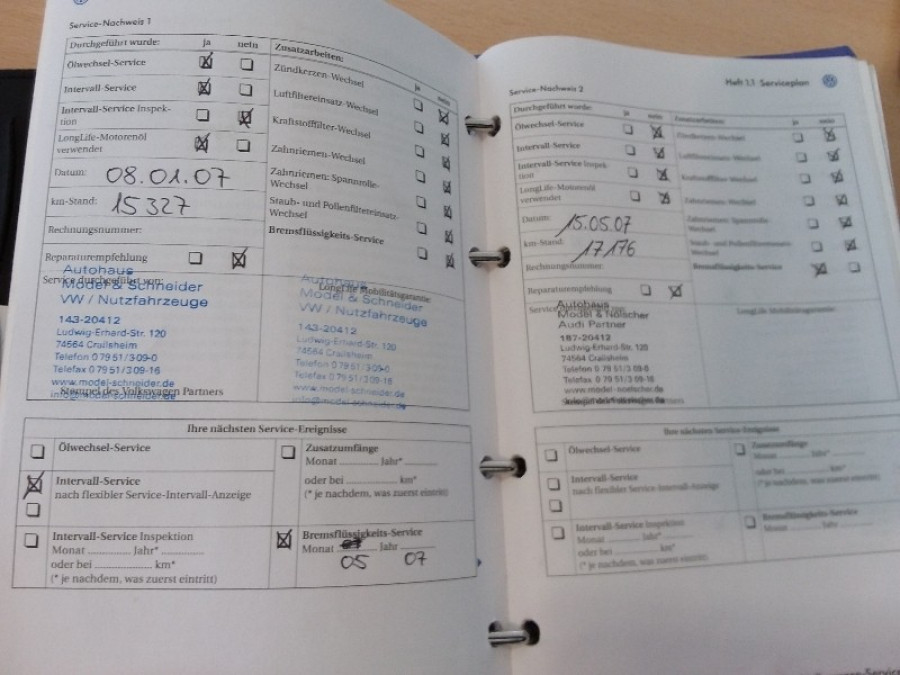 Service-Nachweis 1
Durchgeführt wurde: ja nein
Ölwechsel-Service
Intervall-Service
Intervall-Service Inspek-
tion
LongLife-Motorenöl
verwendet
Datum: 08.01.07
km-Stand: 15 327
Rechnungsnummer:
Reparaturempfehlung
Service durchgeführt von:
Autohaus
Model & Schneider
VW / Nutzfahrzeuge
143-20412
Ludwig-Erhard-Str. 120
74564 Crailsheim
Telefon 0 79 51/3 09-0
Telefax 0 79 51/3 09-16
www.model-schneider.de
info@model-schneider.de
Stempel des Volkswagen Partners
Zusatzarbeiten: ja nein
Zündkerzen-Wechsel
Luftfiltereinsatz-Wechsel
Kraftstofffilter-Wechsel
Zahnriemen-Wechsel
Zahnriemen: Spannrolle-
Wechsel
Staub- und Pollenfiltereinsatz-
Wechsel
Bremsflüssigkeits-Service
LongLife Mobilitätsgarantie:
Autohaus
Model & Schneider
VW / Nutzfahrzeuge
143-20412
Ludwig-Erhard-Str. 120
74564 Crailsheim
Telefon 0 79 51/3 09-0
Telefax 0 79 51/3 09-16
www.model-schneider.de
info@model-schneider.de
Ihre nächsten Service-Ereignisse
Ölwechsel-Service
Intervall-Service
nach flexibler Service-Intervall-Anzeige
Intervall-Service Inspektion
Monat Jahr*
oder bei km*
(* je nachdem, was zuerst eintritt)
Zusatzumfänge
Monat Jahr*
oder bei km*
(* je nachdem, was zuerst eintritt)
Bremsflüssigkeits-Service
Monat Jahr
05 07
Service-Nachweis 2
Heft 1.1 Serviceplan
Durchgeführt wurde: ja nein
Ölwechsel-Service
Intervall-Service
Intervall-Service Inspek-
tion
LongLife-Motorenöl
verwendet
Datum: 15.05.07
km-Stand: 17176
Rechnungsnummer:
Reparaturempfehlung
Autohaus
Model & Nölscher
Audi Partner
187-20412
Ludwig-Erhard-Str. 120
74564 Crailsheim
Telefon 0 79 51/3 09-0
Telefax 0 79 51/3 09-16
Zusatzarbeiten: ja nein
Zündkerzen-Wechsel
Luftfiltereinsatz-Wechsel
Kraftstofffilter-Wechsel
Zahnriemen-Wechsel
Zahnriemen: Spannrolle-
Wechsel
Staub- und Pollenfiltereinsatz-
Wechsel
Bremsflüssigkeits-Service
LongLife Mobilitätsgarantie:
Ihre nächsten Service-Ereignisse
Ölwechsel-Service
Intervall-Service
nach flexibler Service-Intervall-Anzeige
Intervall-Service Inspektion
Monat Jahr*
oder bei km*
(* je nachdem, was zuerst eintritt)
Zusatzumfänge
Monat Jahr*
oder bei km*
(* je nachdem, was zuerst eintritt)
Bremsflüssigkeits-Service
Monat Jahr